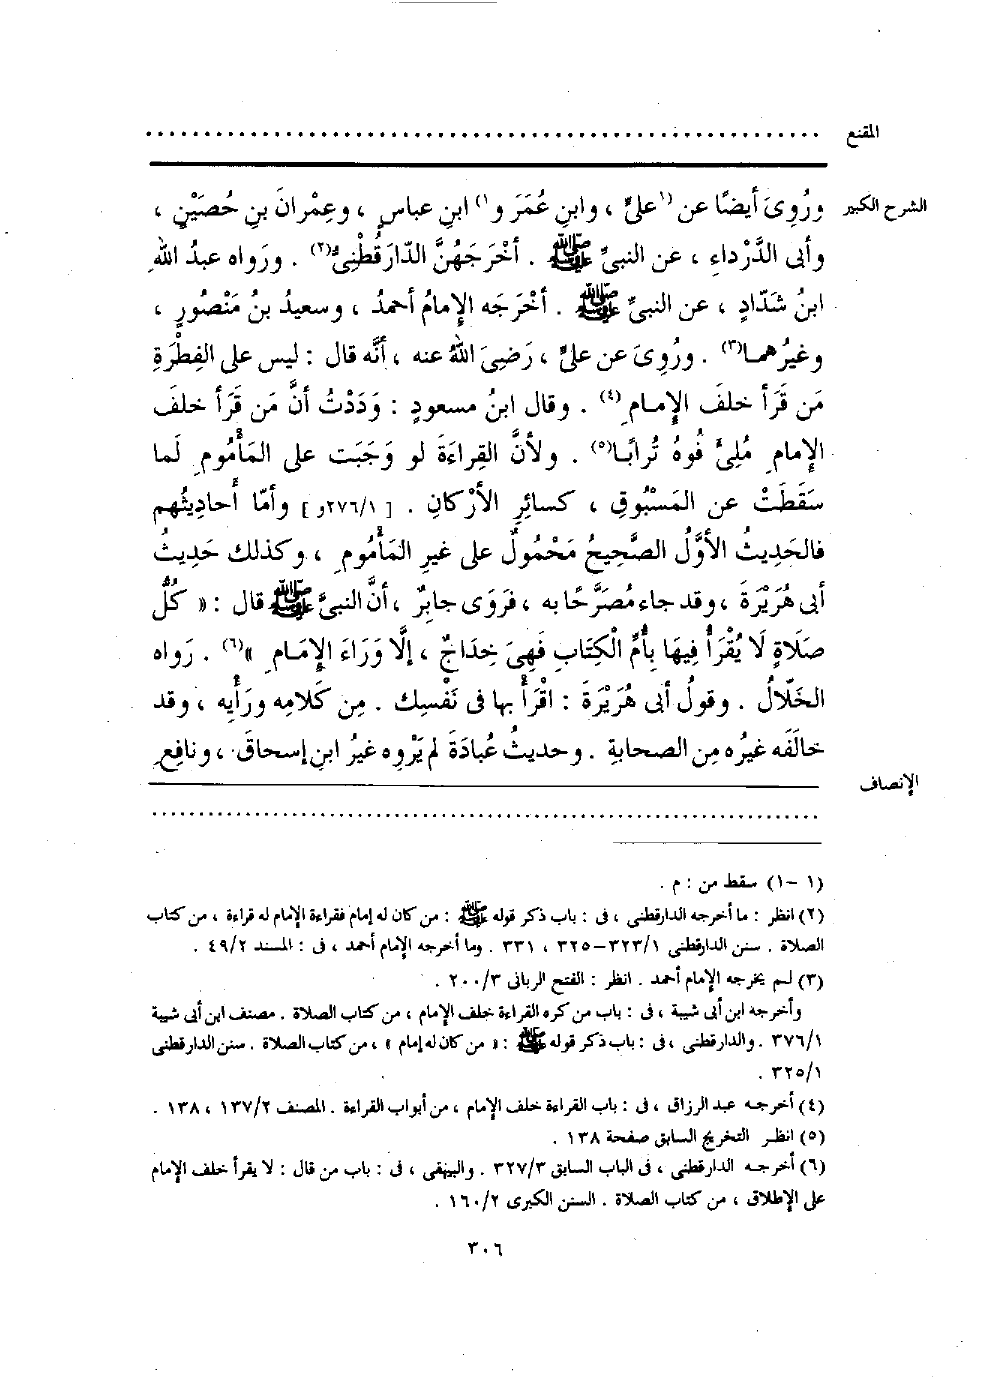 المقنع ........................................................
الشرح الكبير ورُوِىَ أيضًا عن (١علىٍّ ، وابنِ عُمَرَ و١) ابنِ عباسٍ ، وعِمْرانَ بنِ حُصَيْنٍ ،
وأبى الدَّرْداءِ ، عن النبىِّ ﷺ . أخْرَجَهُنَّ الدّارَقُطْنِىُّ(٢) . ورَواه عبدُ اللهِ
ابنُ شَدّادٍ ، عن النبىِّ ﷺ . أخْرَجَه الإِمامُ أحمدُ ، وسعيدُ بنُ مَنْصُورٍ ،
وغيرُهما(٣) . ورُوِىَ عن علىٍّ ، رَضِىَ اللهُ عنه ، أنَّه قال : ليس على الفِطْرَةِ
مَن قَرَأ خلفَ الإِمامِ(٤) . وقال ابنُ مسعودٍ : وَدَدْتُ أنَّ مَن قَرَأ خلفَ
الإِمامِ مُلِئَ فُوهُ تُرابًا(٥) . ولأنَّ القِراءَةَ لو وَجَبَت على المَأْمُومِ لَما
سَقَطَتْ عن المَسْبُوقِ ، كسائِرِ الأرْكانِ . [ ٢٧٦/١و ] وأمّا أحادِيثُهم
فالحَدِيثُ الأوَّلُ الصَّحِيحُ مَحْمُولٌ على غيرِ المَأْمُومِ ، وكذلك حَدِيثُ
أبى هُرَيْرَةَ ، وقد جاء مُصَرَّحًا به ، فرَوَى جابِرٌ ، أنَّ النبىَّ ﷺ قال : « كُلُّ
صَلَاةٍ لَا يُقْرَأُ فِيهَا بِأُمِّ الْكِتَابِ فَهِىَ خِدَاجٌ ، إلَّا وَرَاءَ الإِمَامِ »(٦) . رَواه
الخَلّالُ . وقولُ أبى هُرَيْرَةَ : اقْرَأْ بها فى نَفْسِك . مِن كَلامِه ورَأْيِه ، وقد
خالَفَه غيرُه مِن الصحابةِ . وحديثُ عُبادَةَ لم يَرْوِه غيرُ ابنِ إسحاقَ ، ونافِعِ
الإنصاف ........................................................
(١ -١) سقط من : م .
(٢) انظر : ما أخرجه الدارقطنى ، فى : باب ذكر قوله ﷺ : من كان له إمام فقراءة الإمام له قراءة ، من كتاب
الصلاة . سنن الدارقطنى ٣٢٣/١-٣٢٥ ، ٣٣١ . وما أخرجه الإمام أحمد ، فى : المسند ٤٩/٢ .
(٣) لـم يخرجه الإمام أحمد . انظر : الفتح الربانى ٢٠٠/٣ .
وأخرجه ابن أبى شيبة ، فى : باب من كره القراءة خلف الإمام ، من كتاب الصلاة . مصنف ابن أبى شيبة
٣٧٦/١ . والدارقطنى ، فى : باب ذكر قوله ﷺ : « من كان له إمام » ، من كتاب الصلاة . سنن الدارقطنى
٣٢٥/١ .
(٤) أخرجـه عبد الرزاق ، فى : باب القراءة خلف الإمام ، من أبواب القراءة . المصنف ١٣٧/٢ ، ١٣٨ .
(٥) انظـر التخريج السابق صفحة ١٣٨ .
(٦) أخرجـه الدارقطنى ، فى الباب السابق ٣٢٧/٣ . والبيهقى ، فى : باب من قال : لا يقرأ خلف الإمام
على الإطلاق ، من كتاب الصلاة . السنن الكبرى ١٦٠/٢ .
٣٠٦